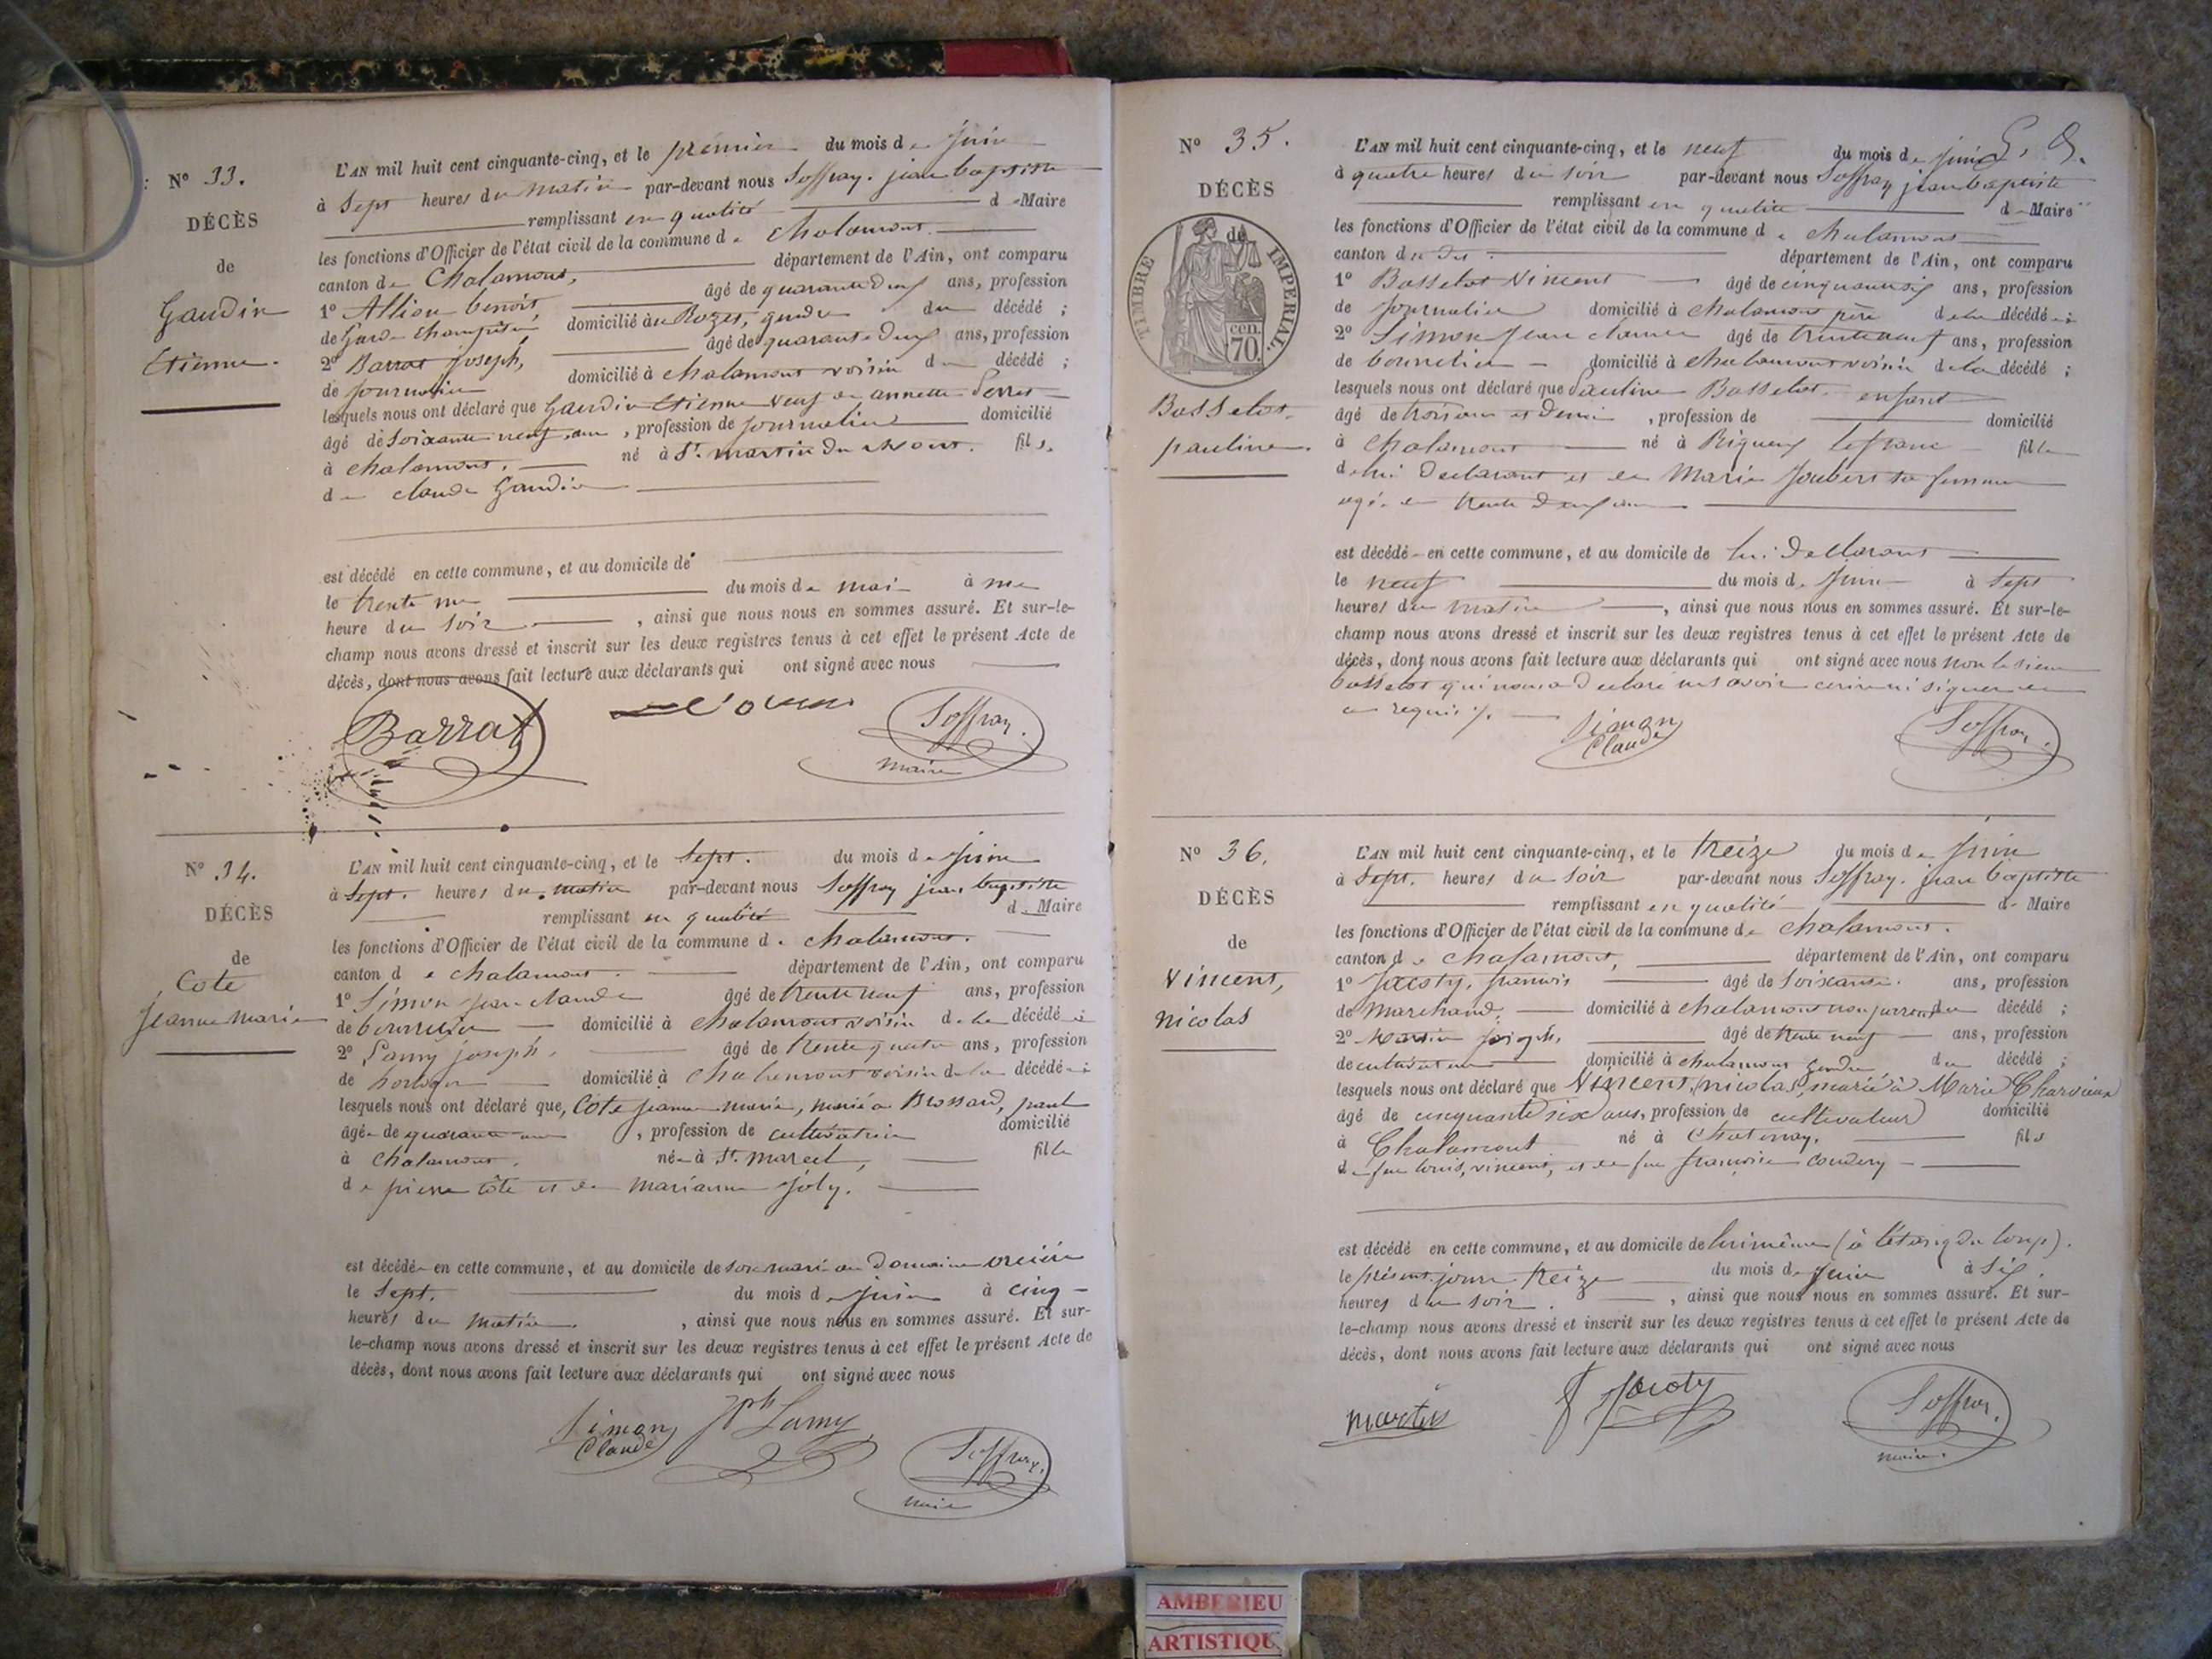 N° 33.
DÉCÈS
de
Gaudin
Etienne.
L'AN mil huit cent cinquante-cinq, et le premier du mois de Juin
à Sept heures du matin par-devant nous Soffray. jean baptiste
remplissant en qualité de Maire
les fonctions d'Officier de l'état civil de la commune de chalamont.
canton de Chalamont, département de l'Ain, ont comparu
1° Allion benoit, âgé de quarante deux ans, profession
de Garde champêtre domicilié au Rozet, gendre du décédé ;
2° Barrat Joseph, âgé de quarante deux ans, profession
de Journalier domicilié à chalamont voisin du décédé ;
lesquels nous ont déclaré que Gaudin Etienne veuf de annette Perret
âgé de soixante neuf ans, profession de Journalier domicilié
à chalamont. né à St. martin du Mont. fils
de claude Gaudin
est décédé en cette commune, et au domicile de
le trente un du mois de mai à une
heure du soir, ainsi que nous nous en sommes assuré. Et sur-le-
champ nous avons dressé et inscrit sur les deux registres tenus à cet effet le présent Acte de
décès, dont nous avons fait lecture aux déclarants qui ont signé avec nous
Barrat Soffray.
maire
N° 34.
DÉCÈS
de
Cote
Jeanne Marie
L'AN mil huit cent cinquante-cinq, et le Sept. du mois de Juin
à Sept. heures du matin par-devant nous Soffray jean baptiste
remplissant en qualité de Maire
les fonctions d'Officier de l'état civil de la commune de chalamont.
canton de chalamont. département de l'Ain, ont comparu
1° Simon Jean claude âgé de trente neuf ans, profession
de bourrelier domicilié à chalamont voisin de la décédée
2° Lamy joseph, âgé de trente quatre ans, profession
de horloger domicilié à chalamont voisin de la décédée
lesquels nous ont déclaré que, Cote jeanne marie, mariée à Brossard, paul
âgée de quarante ans, profession de cultivatrice domicilié
à chalamont. née à St. marcel, fille
de pierre côte et de marianne Joly.
est décédée en cette commune, et au domicile de son mari au Domaine
le Sept. du mois de juin à cinq
heures du matin, ainsi que nous nous en sommes assuré. Et sur-
le-champ nous avons dressé et inscrit sur les deux registres tenus à cet effet le présent Acte de
décès, dont nous avons fait lecture aux déclarants qui ont signé avec nous
Simon Jph Lamy
Claude Soffray.
maire
N° 35.
DÉCÈS
de
TIMBRE IMPERIAL.
70 cen.
Bosselot.
pauline.
L'AN mil huit cent cinquante-cinq, et le neuf du mois de Juin
à quatre heures du soir par-devant nous Soffray jean baptiste
remplissant en qualité de Maire
les fonctions d'Officier de l'état civil de la commune de chalamont
canton du dit département de l'Ain, ont comparu
1° Bosselot Vincent âgé de cinquante six ans, profession
de Journalier domicilié à chalamont père de la décédée ;
2° Simon Jean claude âgé de trente neuf ans, profession
de bourrelier domicilié à chalamont voisin de la décédé ;
lesquels nous ont déclaré que Pauline Bosselot. enfant
âgé de trois ans et demi, profession de domicilié
à chalamont né à Rigneux le franc fille
de lui Déclarant et de Marie Joubert sa femme
agé de trente deux ans
est décédé en cette commune, et au domicile de lui Déclarant
le neuf du mois de Juin à Sept
heures du matin, ainsi que nous nous en sommes assuré. Et sur-le-
champ nous avons dressé et inscrit sur les deux registres tenus à cet effet le présent Acte de
décès, dont nous avons fait lecture aux déclarants qui ont signé avec nous non le sieur
bosselot qui nous a déclaré ne savoir écrire ni signer de
ce requis ./.
Simon
Claude Soffray.
N° 36.
DÉCÈS
de
Vincent,
nicolas
L'AN mil huit cent cinquante-cinq, et le treize du mois de Juin
à Sept. heures du soir par-devant nous Soffray. jean baptiste
remplissant en qualité de Maire
les fonctions d'Officier de l'état civil de la commune de chalamont.
canton de chalamont, département de l'Ain, ont comparu
1° françois âgé de Soixante. ans, profession
de Marchand, domicilié à chalamont non parent du décédé ;
2° Martin joseph, âgé de trente neuf ans, profession
de cultivateur domicilié à chalamont Gendre du décédé ;
lesquels nous ont déclaré que Vincent, nicolas, marié à Marie
âgé de cinquante six ans, profession de cultivateur domicilié
à Chalamont né à Chatenay, fils
de feu louis, vincent, et de feu françoise
est décédé en cette commune, et au domicile de lui même (à l'étang du loup).
le présent jour treize du mois de juin à Six
heures du soir, ainsi que nous nous en sommes assuré. Et sur-
le-champ nous avons dressé et inscrit sur les deux registres tenus à cet effet le présent Acte de
décès, dont nous avons fait lecture aux déclarants qui ont signé avec nous
martin Soffray.
maire.
AMBERIEU
ARTISTIQU